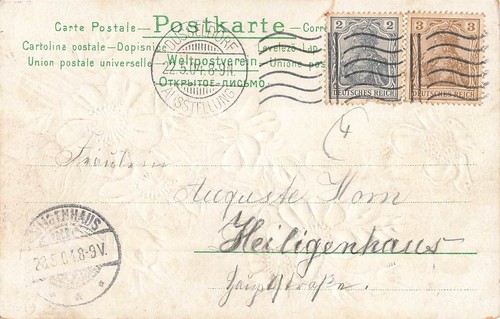 Carte Postale — Postkarte — Corre
Cartolina postale — Dopisnic Levelező-Lap
Union postale universelle Weltpostverein Unione po
Открытое-письмо
DÜSSELDORF
22.5.04.8-9N.
AUSSTELLUNG
2 2
DEUTSCHES REICH
3 3
DEUTSCHES REICH
4
Fräulein
Auguste Horn
Heiligenhaus
Hauptstraße.
23.5.04.8-9V.